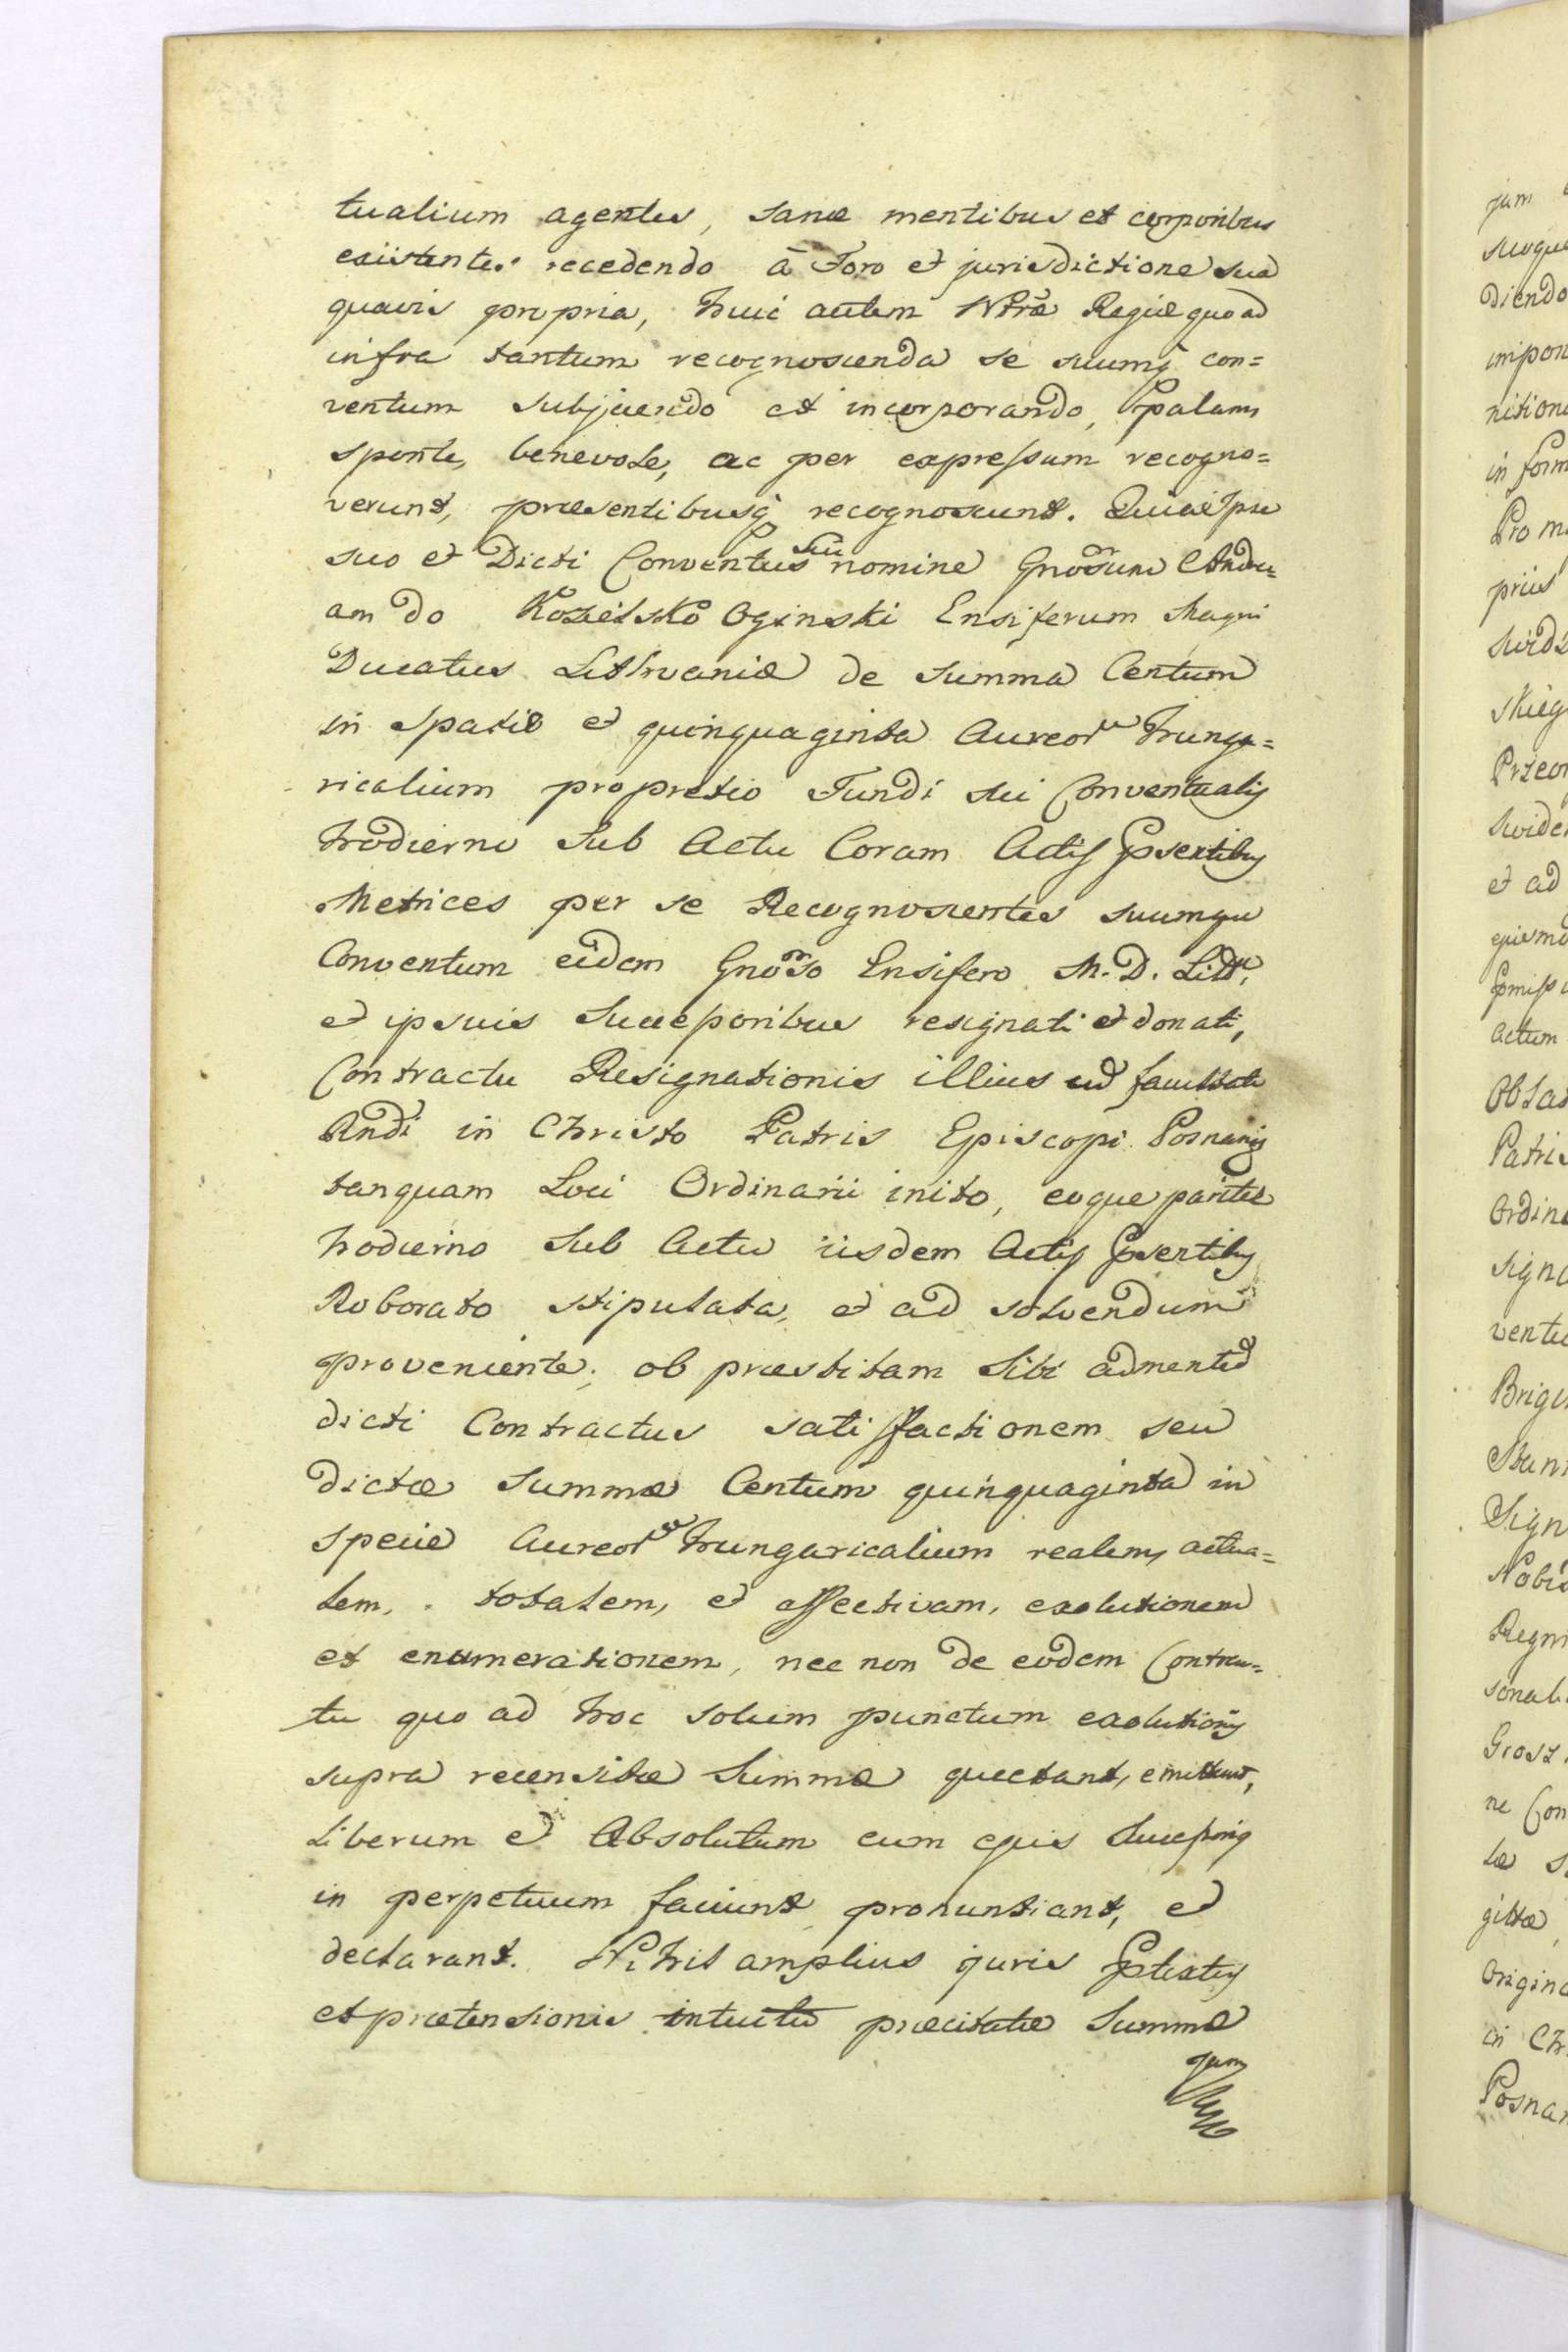 tualium agentes, sanæ mentibus et corporibus
existentes. recedendo à Foro et jurisdictione sua
quavis propria, huic autem Nræ Regiæ quoad
infra tantum recognoscenda se suumq con=
ventum subjiciendo et incorporando, palam
sponte, benevole, ac per expressum recogno=
verunt, præsentibusq recognoscunt. Quia ipsæ
suo et Dicti Conventus sui nomine Gnosum Andre=
am do Kozielsko Oginski Ensiferum Magni
Ducatus Lithvaniæ de Summa Centum
in Spatie et quinquaginta Aureor Hunga=
ricalium pro pretio Fundi sui Conventualis
hodierno Sub Actu Coram Actis psentibus
Metrices per se Recognoscentes suumque
Conventum eidem Gnoso Ensifero M. D. Litt.
et ipsius Successoribus resignati et donati,
Contractu Resignationis illius ad facultate
Rndi in Christo Patris Episcopi Posnanis
tanquam Loci Ordinarii inito, eoque pariter
hodierno Sub Actu iisdem Actis psentibus
Roborato stipulata, et ad solvendum
proveniente; ob præstitam Sibi ad mentem
dicti Contractus satisfactionem seu
dictæ Summæ Centum quinquaginta in
specie Aureor Hungaricalium realem, actua=
lem, totalem, et effectivam, exolutionem
et enumerationem, nec non de eodem Contrac=
tu quo ad hoc solum punctum exolutionis
supra recensitæ Summæ quietant, emittunt,
Liberum et Absolutum cum ejus Succssoris
in perpetuum faciunt pronuntiant, et
declarant. Nihil amplius juris ptestatis
et prætensionis intuitu præcitatæ Summæ
jam
jam
suoque
diendo
impon
nition
in form
Pro m
prius
Swidz
skieg
Przeor
Swider
et ad
ejusmo
pmiss
Actum
Obsta
Patris
Ordin
signa
ventu
Brigi
Stani
Sign
Nobis
Regni
sonali
Grosz
ne Con
tæ S
gittæ
Origina
in Ch
Posna